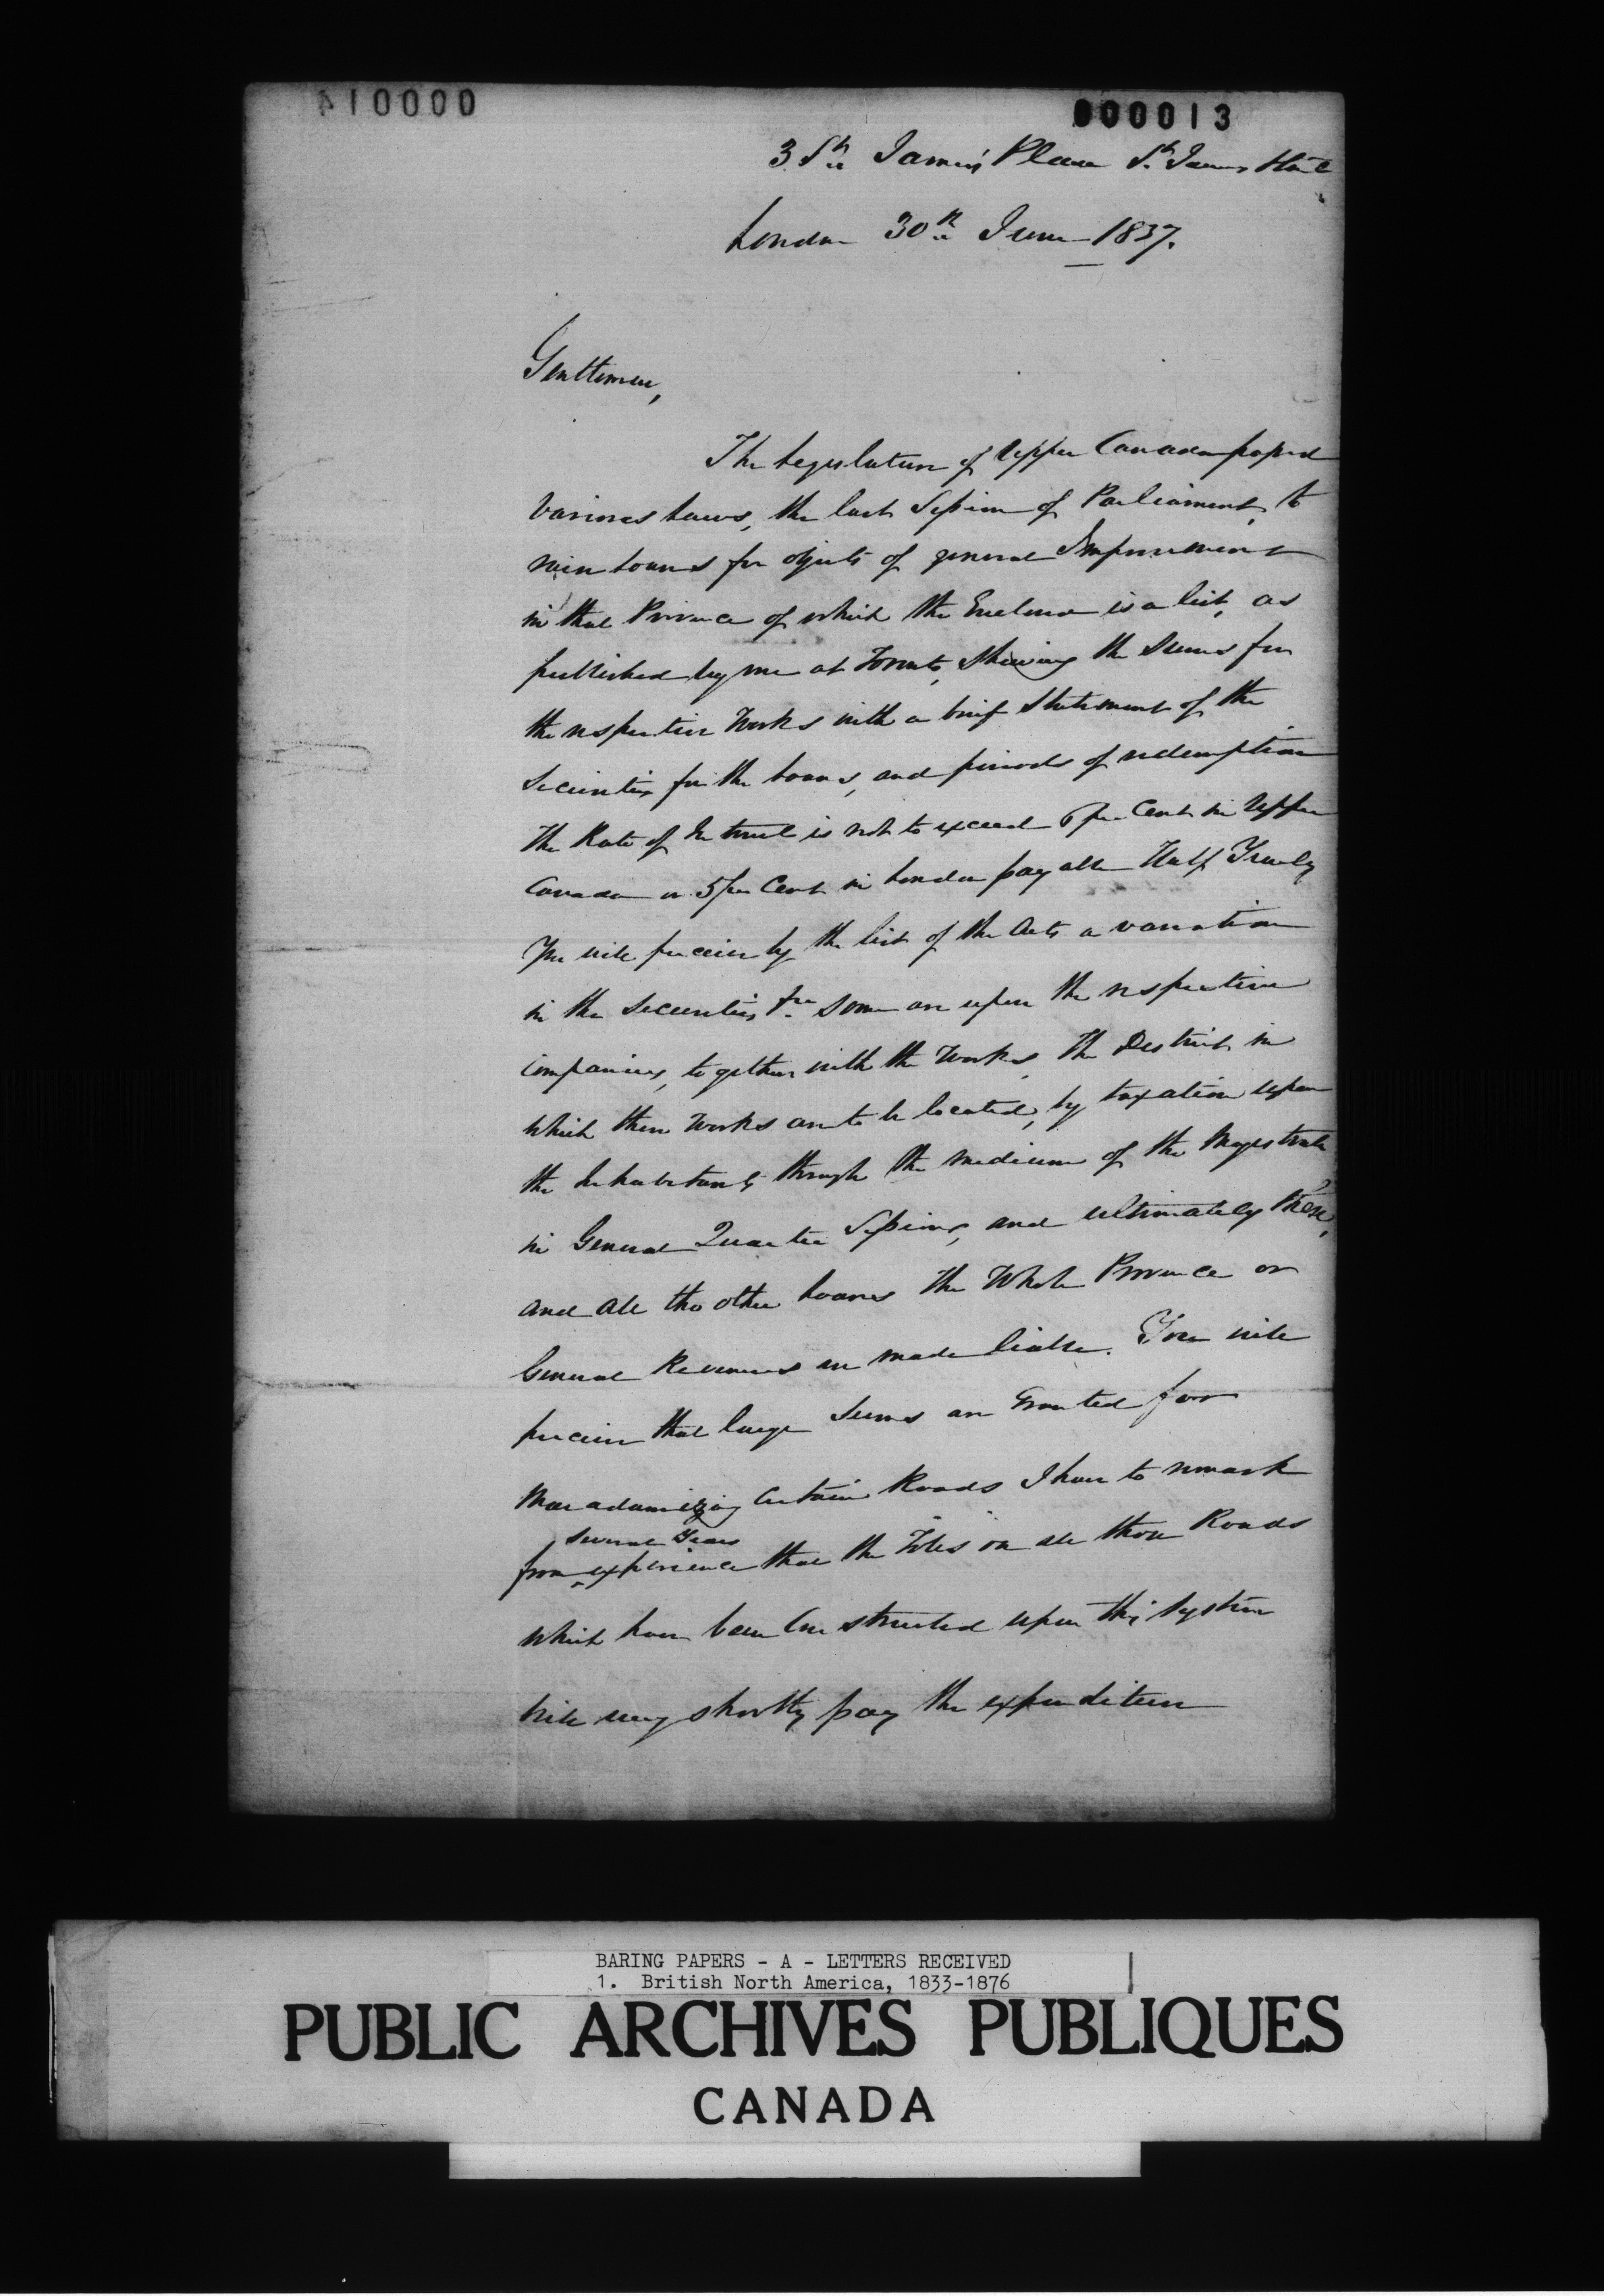 000013
3 St. James's Place St. James Str
London 30th June 1837.
Gentlemen,
The Legislature of Upper Canada passed
various Laws, the last Session of Parliament, to
raise Loans for objects of general Improvement
in that Province of which the Enclosed is a list, as
published by me at Toronto, shewing the Sums for
the respective Works with a brief Statement of the
Securities for the Loans, and periods of redemption
The Rate of Interest is not to exceed 6 per Cent in Upper
Canada or 5 per Cent in London payable Half Yearly
You will perceive by the list of the Acts a variation
in the Securities for some are upon the respective
Companies, together with the Works, the District in
which these Works are to be located, by taxation upon
the Inhabitants through the medium of the Magistrates
in General Quarter Sessions, and ultimately these,
and all the other Loans the Whole Province or
General Revenues are made liable. You will
perceive that large Sums are Granted for
Macadamizing Certain Roads I have to remark
several Years
from experience that the Tolls on all those Roads
which have been Constructed upon this System
will very shortly pay the expenditure
BARING PAPERS - A - LETTERS RECEIVED
1. British North America, 1833-1876
PUBLIC ARCHIVES PUBLIQUES
CANADA